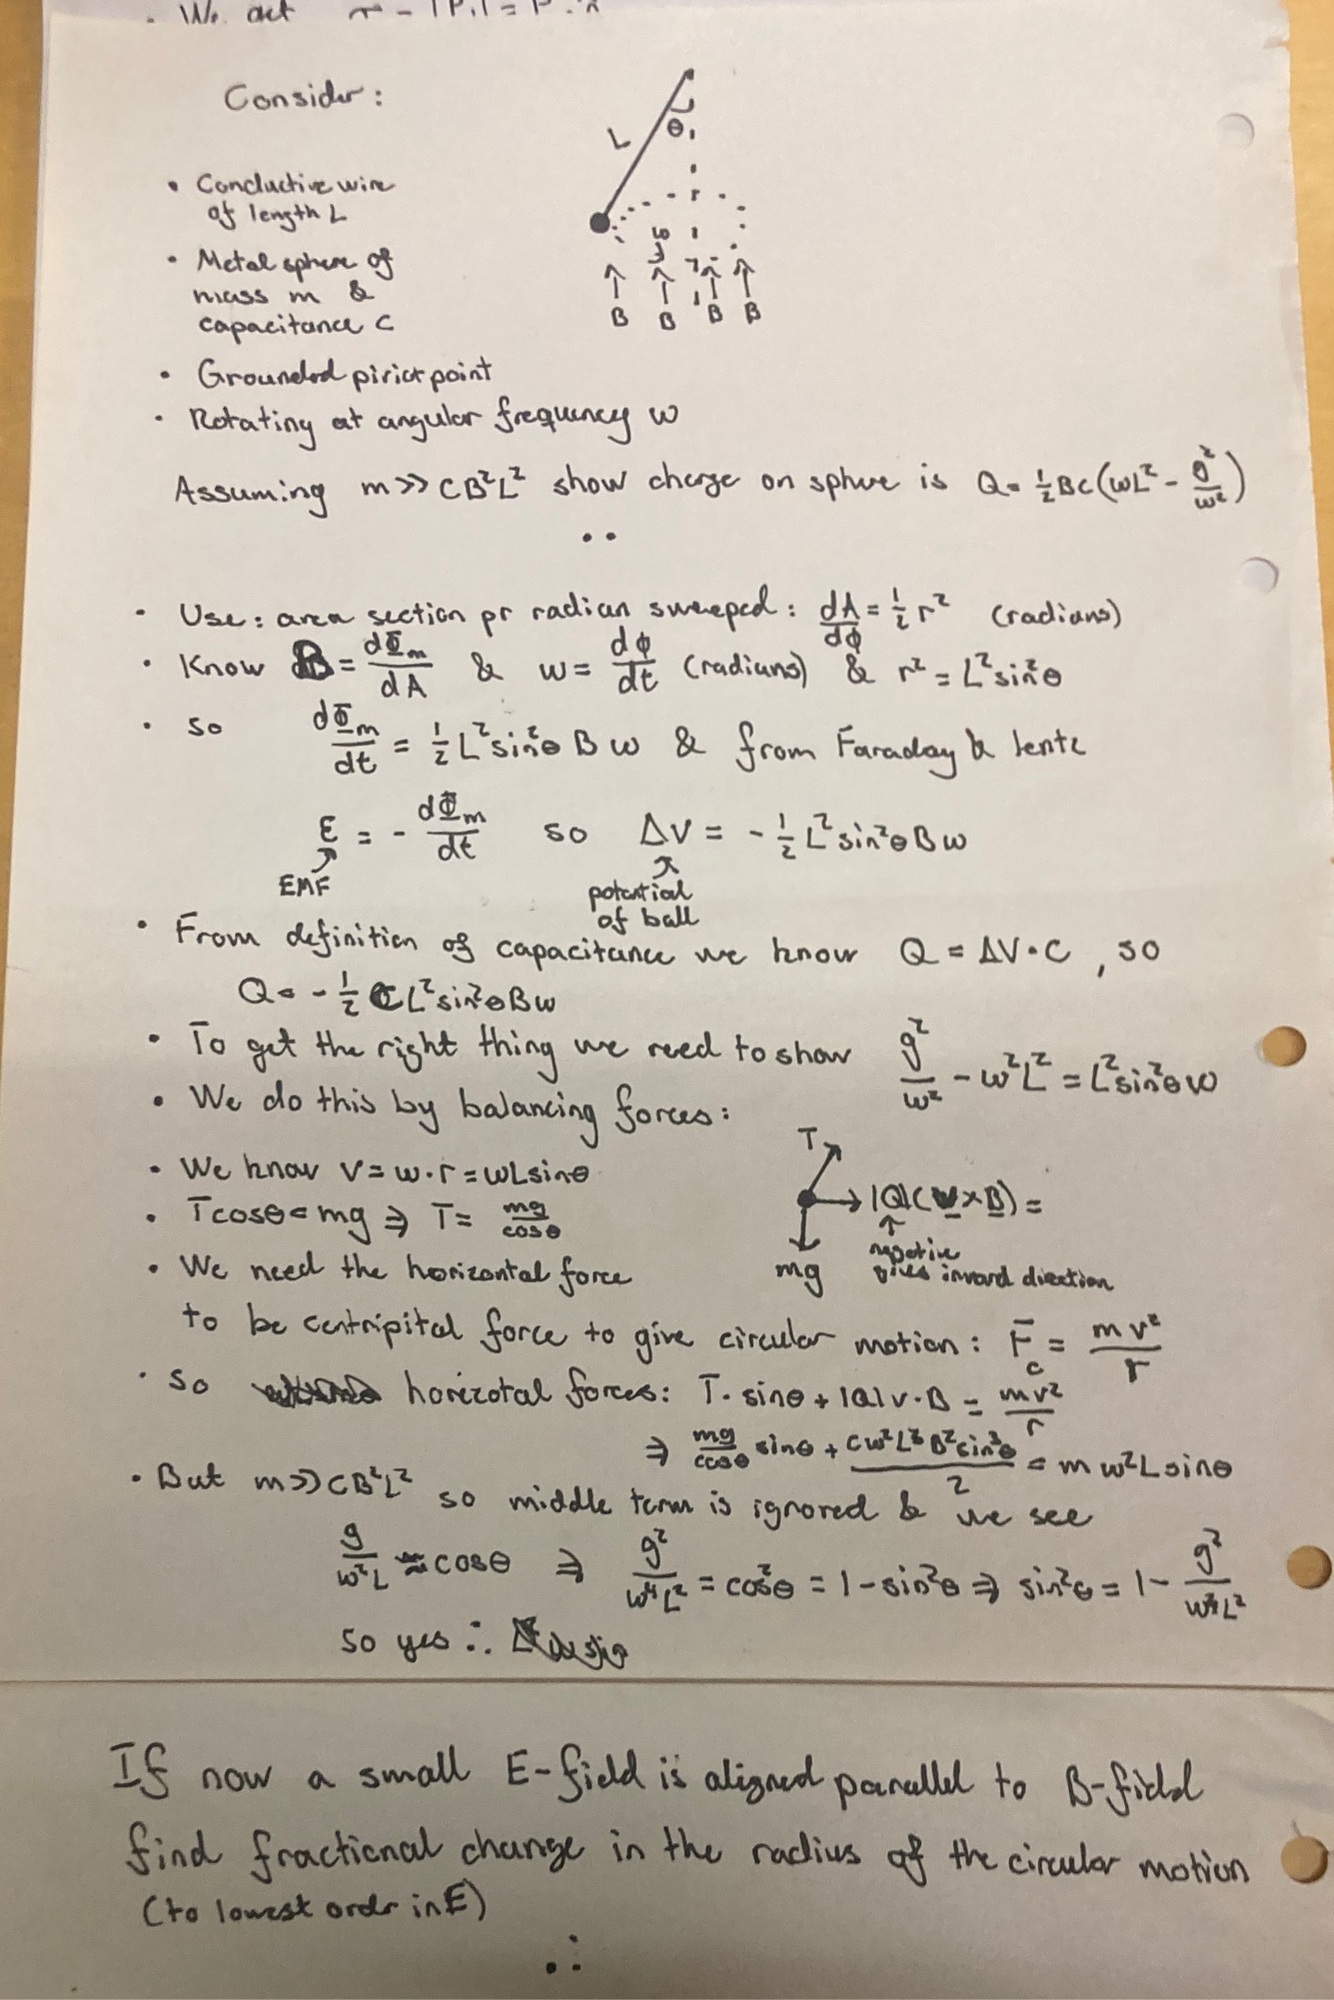 . We get r - |P,| = P
Consider:
L
θ
• Conductive wire
of length L
• Metal sphere of
mass m &
capacitance C
ω
B B B B
• Grounded pivot point
• Rotating at angular frequency ω
Assuming m >> CB²L² show charge on sphere is Q = ½BC(ωL² - g²/ω²)
• Use: area section pr radian sweeped: dA/dϕ = ½ r² (radians)
• Know B = dΦm/dA & ω = dϕ/dt (radians) & r² = L²sin²θ
• so dΦm/dt = ½ L²sin²θ B ω & from Faraday &
ε = - dΦm/dt so ΔV = - ½ L²sin²θ B ω
EMF
potential
of ball
• From definition of capacitance we know Q = ΔV · C , so
Q = - ½ C L²sin²θ B ω
• To get the right thing we need to show g²/ω² - ω²L² = L²sin²θ ω
• We do this by balancing forces:
• We know v = ω·r = ωLsinθ
T
• Tcosθ = mg ⇒ T = mg/cosθ
|Q|(v × B) =
negative
gives inward direction
mg
• We need the horizontal force
to be centripital force to give circular motion: Fc = mv²/r
• So horizotal forces: T· sinθ + |Q|v·B = mv²/r
⇒ mg/cosθ sinθ + Cω²L³B²sin³θ/2 = mω²Lsinθ
• But m >> CB²L² so middle term is ignored & we see
g/ω²L ≈ cosθ ⇒ g²/ω⁴L² = cos²θ = 1 - sin²θ ⇒ sin²θ = 1 - g²/ω⁴L²
so yes ∴
If now a small E-field is aligned parallel to B-field
find fractional change in the radius of the circular motion
(to lowest order in E)